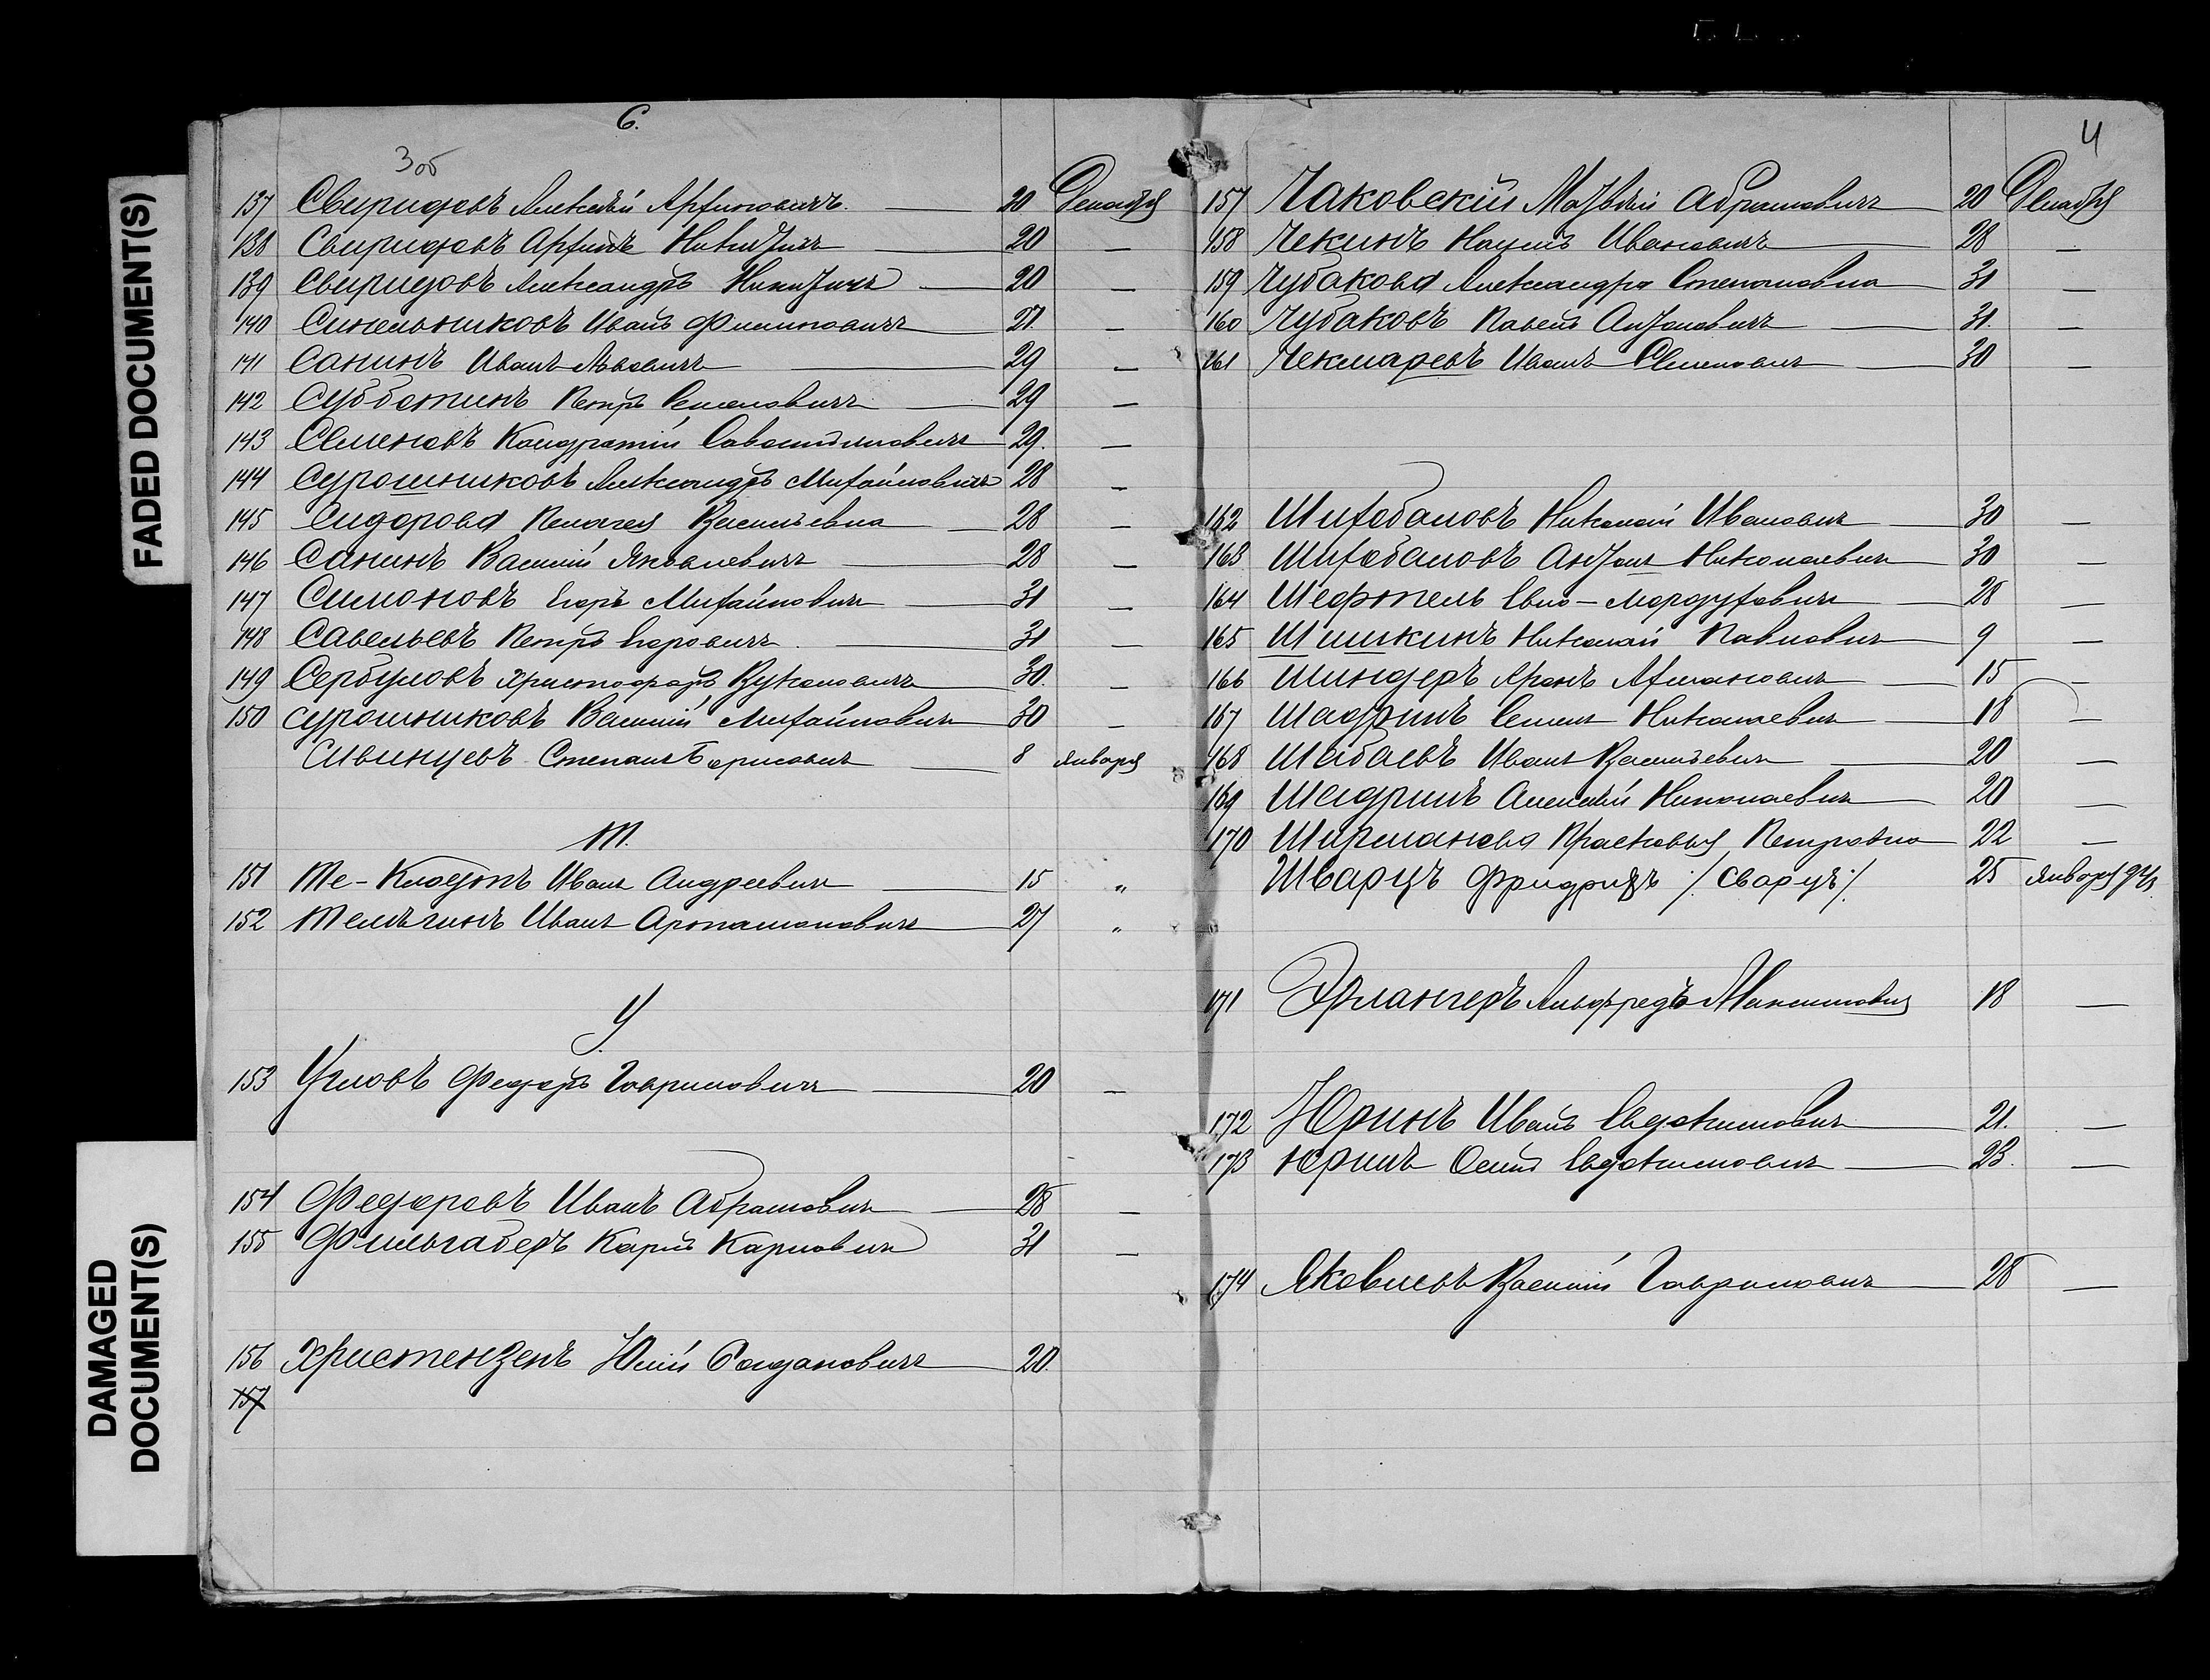 FADED DOCUMENT(S)
DAMAGED DOCUMENT(S)
С.
3об
137 Свиридовъ Алексѣй Архиповичъ 20 Декабря
138 Свиридовъ Архипъ Никитичъ 20 —
139 Свиридовъ Александръ Никитичъ 20 —
140 Синельниковъ Иванъ Филиповичъ 27. —
141 Санинъ Иванъ Львовичъ 29 —
142 Субботинъ Петръ Семеновичъ 29 —
143 Семеновъ Кондратій Савостьяновичъ 29. —
144 Сурошниковъ Александръ Михайловичъ 28 —
145 Сидорова Пелагея Васильевна 28 —
146 Санинъ Василій Яковлевичъ 28 —
147 Симоновъ Егоръ Михайловичъ 31 —
148 Савельевъ Петръ Егоровичъ 31 —
149 Сербуловъ Христофоръ Вуколовичъ 30. —
150 Сурошниковъ Василій Михайловичъ 30 —
Свинцевъ Степанъ Борисовичъ 8 января
Т.
151 Те-Клодтъ Иванъ Андреевичъ 15 „
152 Телѣгинъ Иванъ Артамоновичъ 27 „
У
153 Угловъ Федоръ Гавриловичъ 20 —
154 Федоровъ Иванъ Абрамовичъ 28 —
155 Фильгаберъ Карлъ Карловичъ 31 —
156 Христензенъ Юлій Богдановичъ 20.
157
4
157 Чаковскій Матвѣй Абрамовичъ 20 Декабря
158 Чекинъ Наумъ Ивановичъ 28 —
159 Чубакова Александра Степановна 31 —
160 Чубаковъ Павелъ Антоновичъ 31. —
161 Чекмаревъ Иванъ Семеновичъ 30 —
162 Шихобаловъ Николай Ивановичъ 30 —
163 Шихобаловъ Антонъ Николаевичъ 30 —
164 Шефтель Евно-Мордуховичъ 28 —
165 Шишкинъ Николай Павловичъ 9 —
166 Шиндеръ Аронъ 15 —
167 Шадринъ Семенъ Николаевичъ 18 —
168 Шабаевъ Иванъ Васильевичъ 20 —
169 Шадринъ Алексѣй Николаевичъ 20 —
170 Ширманова Прасковья Петровна 22 —
Шварцъ Фридрихъ /:Сварцъ:/ 25 января
171 Эрлангеръ Альфредъ Максимовичъ 18 —
172 Юринъ Иванъ Евдокимовичъ 21. —
173 Юринъ Осипъ Евдокимовичъ 23. —
174 Яковлевъ Василій Гавриловичъ 28 —